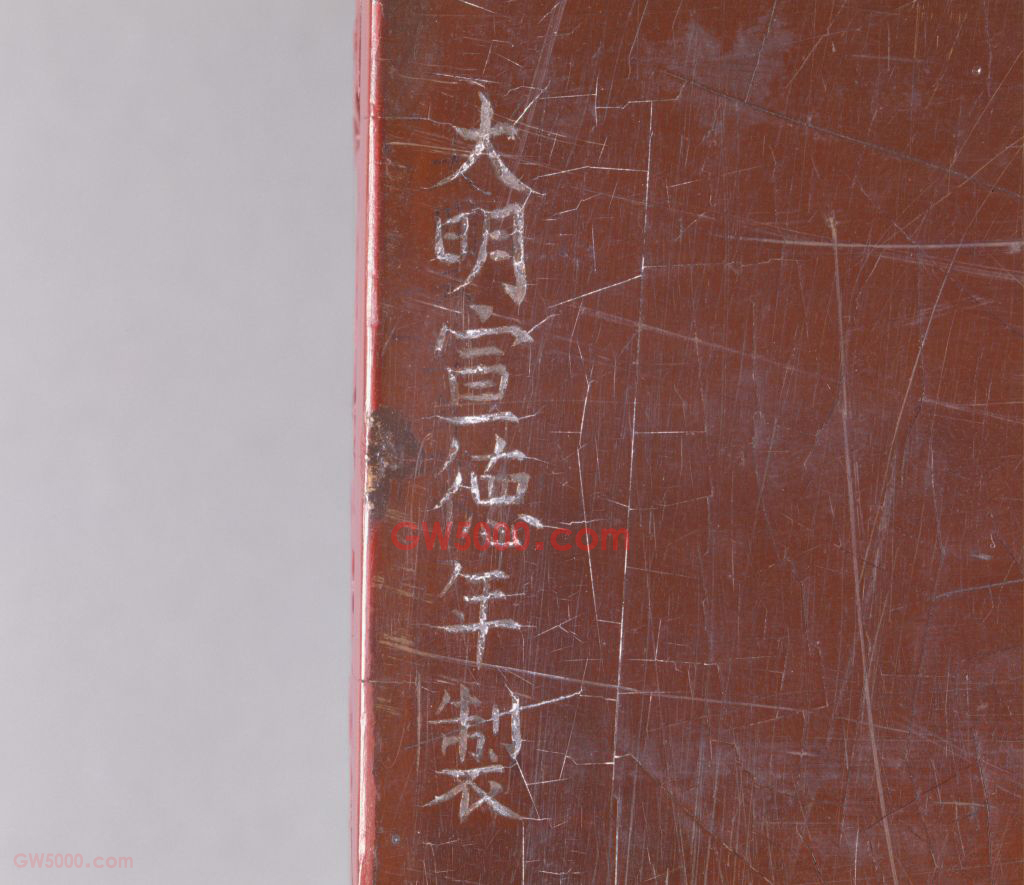 大明宣德年製
GW5000.com
GW5000.com